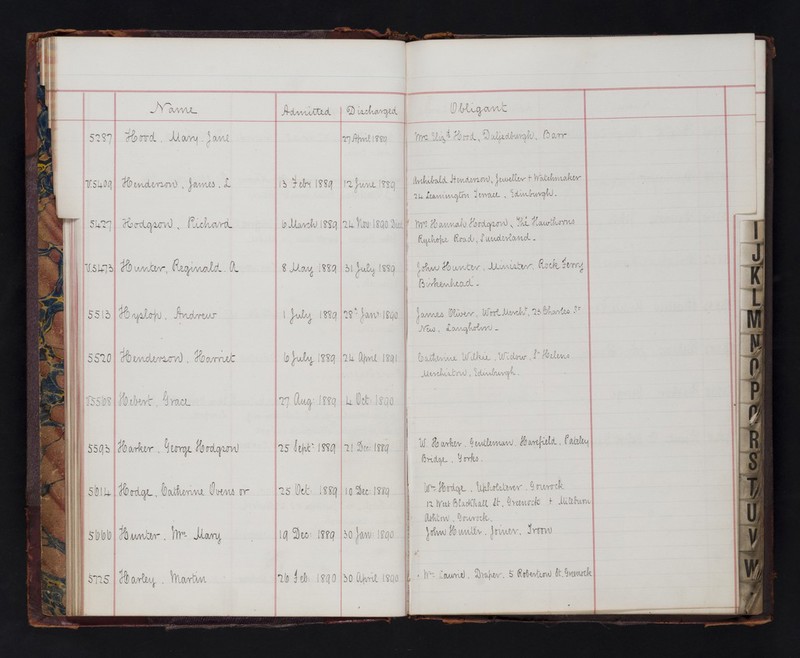 Name Admitted Discharged Obligant
5287 Hood, Mary Jane 27 April 1889 Mrs Elizth Hood, Daljedburgh, Barr
V.5409 Henderson, James. L 13 Feby 1889 12 June 1889 Archibald Henderson, Jeweller + Watchmaker
24 Leamington Terrace, Edinburgh.
5427 Hodgson, Richard 6 March 1889 24 Nov 1890 Mrs Hannah Hodgson, The Hawthorns
Ryehope Road, Sunderland.
V.5473 Hunter, Reginald. A 8 May 1889 31 July 1889 John Hunter, Minister, Rock Ferry
Birkenhead.
5513 Hyslop, Andrew 1 July 1889 28th Jany 1890 James Oliver, Wool Mercht, 23 Charles St
New, Langholm.
5520 Henderson, Harriet 6 July 1889 24 April 1891 Catherine Wilkie, Widow, St Helens
Merchiston, Edinburgh.
V5568 Hebert, Grace 27 Aug 1889 4 Oct 1890
5593 Harker, George Hodgson 25 Sept 1889 21 Dec 1889 W. Harker, Gentleman, Harefield, Pateley
Bridge, Yorks.
5614 Hodge, Catherine Ovens or 25 Oct 1889 10 Dec 1889 Wm Hodge, Upholsterer, Gourock
12 West Blackhall St, Greenock +
Ashton, Gourock.
5666 Hunter, Mrs Mary 19 Dec 1889 30 Jany 1890 John Hunter, Joiner, Troon
5725 Harley, Martin 26 Feb 1890 30 April 1890 Wm Laurie, Draper, 5 Robertson St, Greenock
I
J
K
L
M
N
O
P
R
S
T
U
V
W